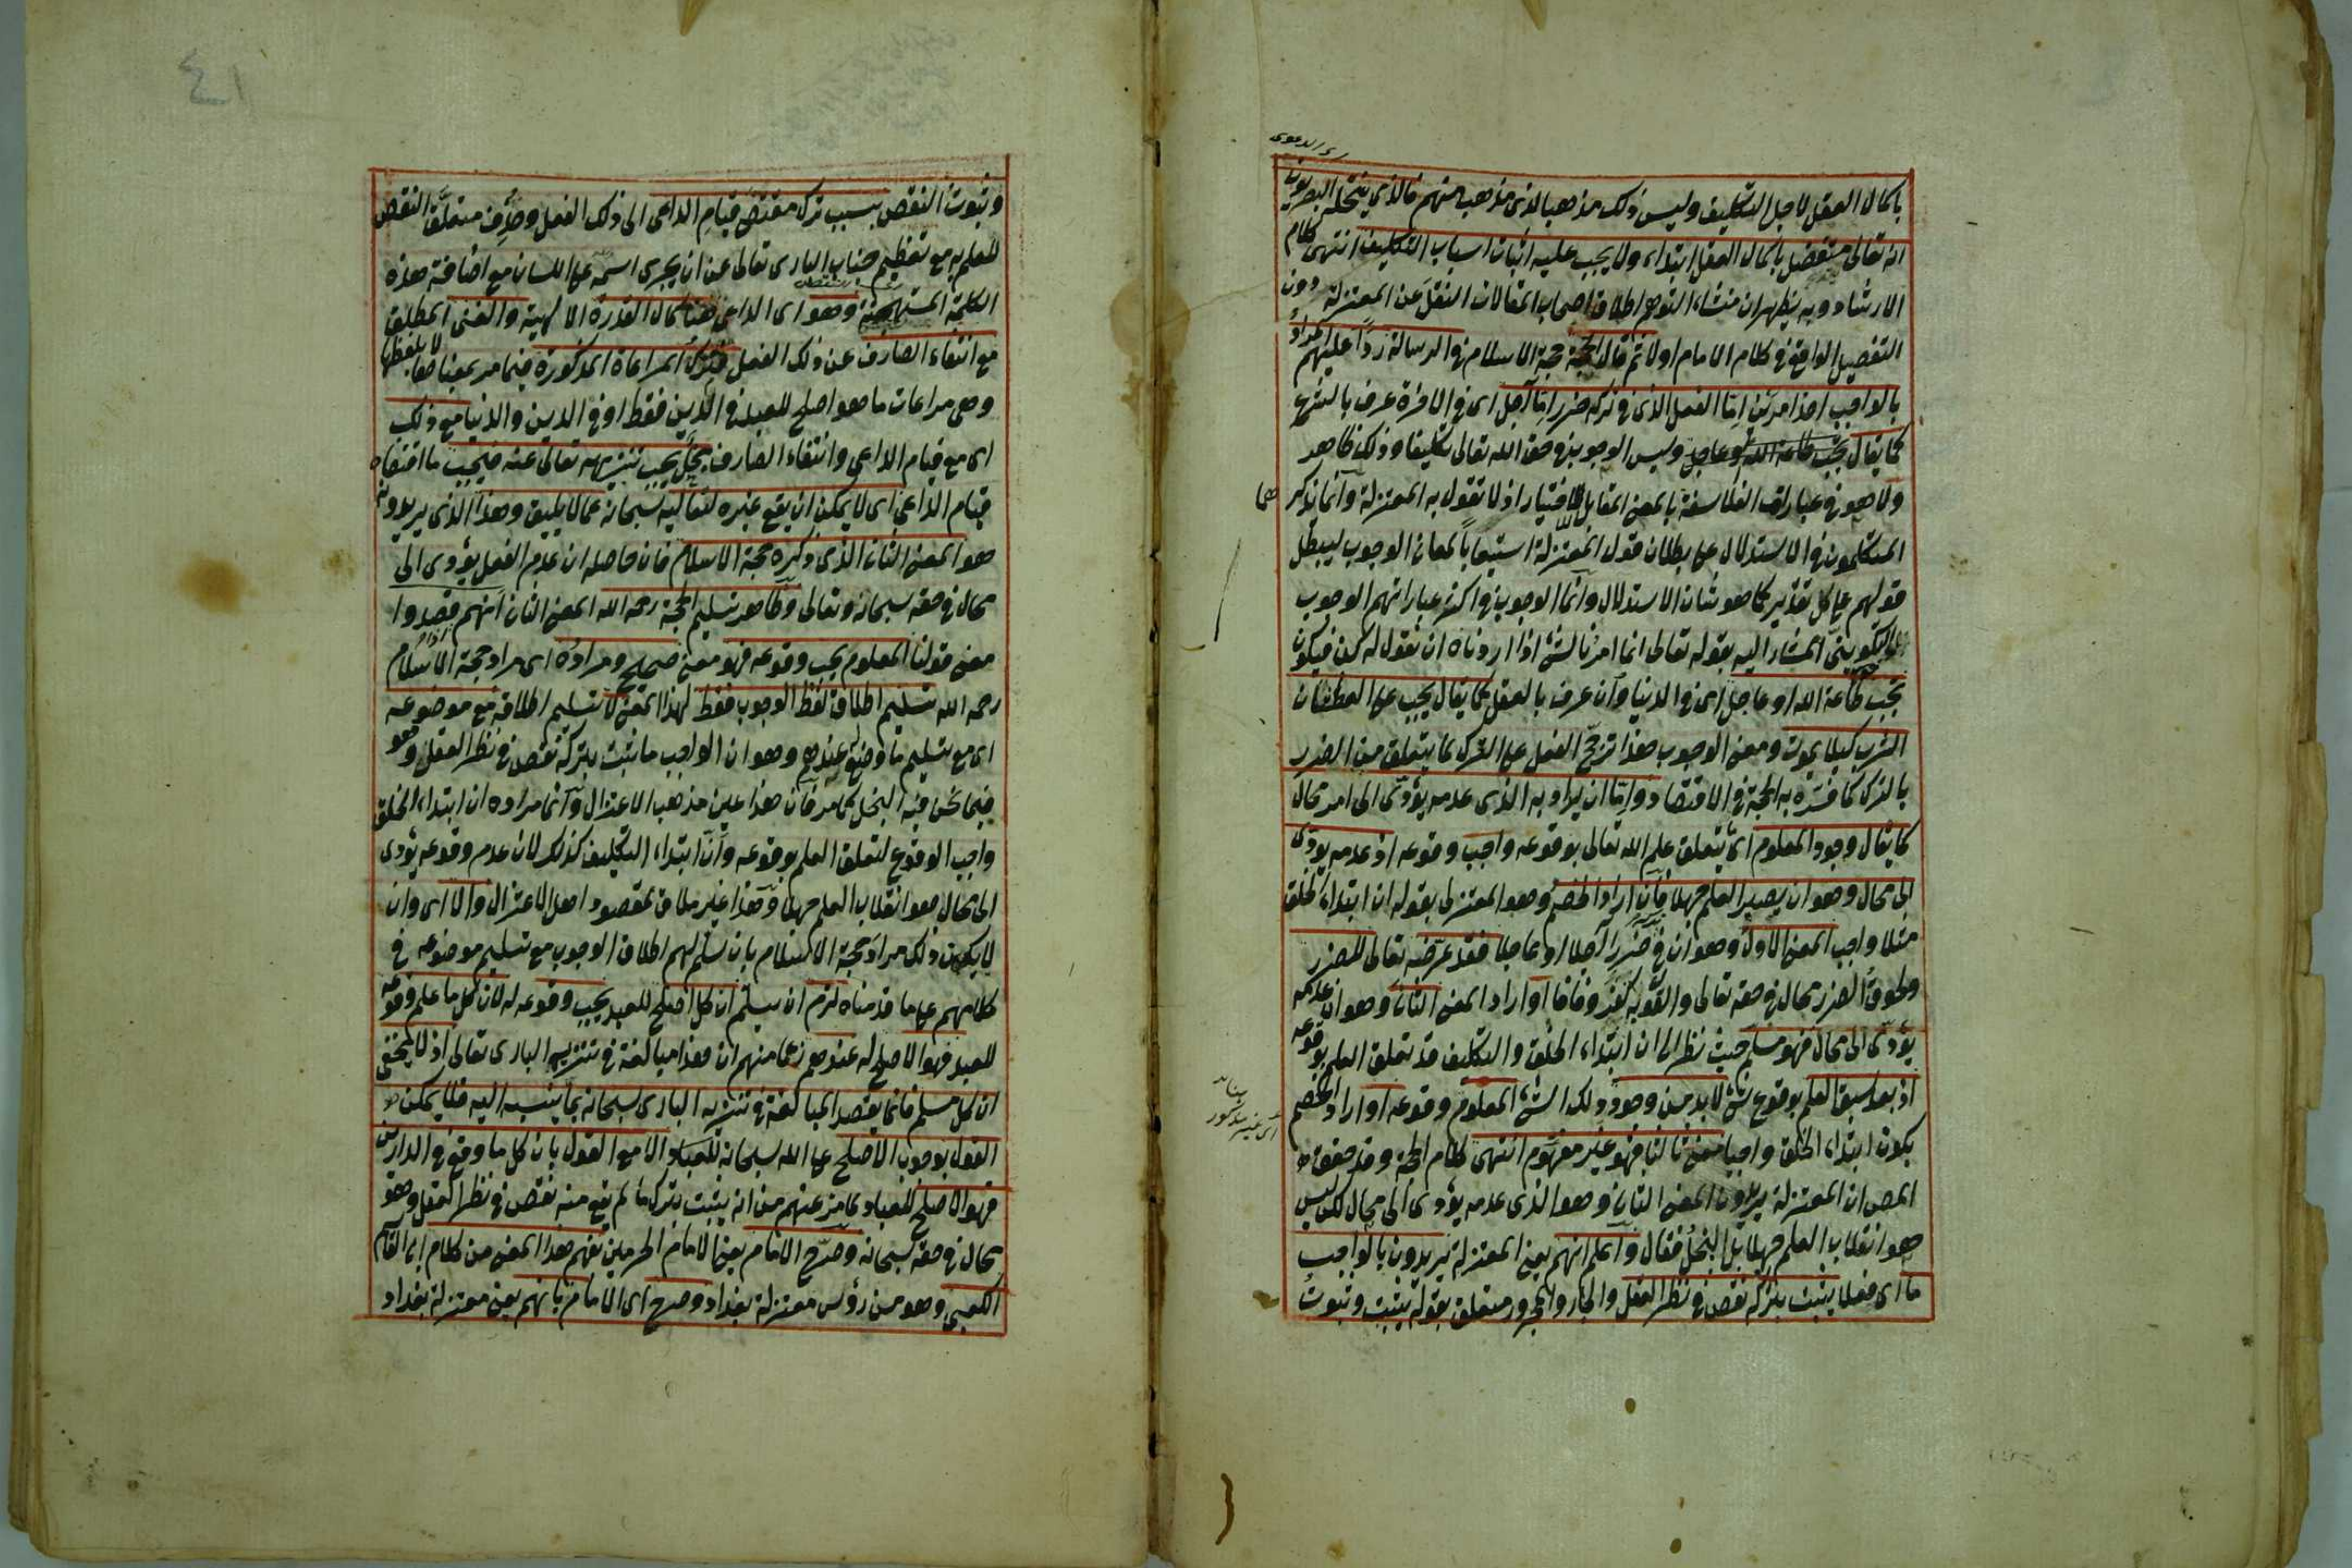 باكمال العقل لاجل التكليف وليس ذلك مذهبا لذى مذهب منهم فالذي ينتحله البصريون
انه تعالى متفضل باكمال العقل ابتداء ولا يجب عليه اثبات اسباب التكليف انتهى كلام
الارشاد وبه يظهر ان منشاء التوهم اطلاق اصحاب المقالات النقل عن المعتزلة دون
التفصيل الواقع في كلام الامام اولا ثم قال الحجة حجة الاسلام في الرسالة ردا عليهم المراد
بالواجب احد امرين اما الفعل الذى في تركه ضرر اما آجل اى في الآخرة عرف بالشرع
كما يقال يجب طاعة الله او عاجل وليس الوجوب في حق الله تعالى تكليفا وذلك ظاهر
ولا هو في عبارات الفلاسفة بالمعنى المقابل للاختيار اذ لا تقول به المعتزلة وانما يذكر هما
المتكلمون في الاستدلال على بطلان قول المعتزلة استيعابا لمعاني الوجوب ليبطل
قولهم على كل تقدير كما هو شان الاستدلال وانما الوجوب في اكثر عباراتهم الوجوب
التكويني المشار اليه بقوله تعالى انما امرنا لشئ اذا اردناه ان نقول له كن فيكون
تجب طاعة الله او عاجل اى في الدنيا وان عرف بالعقل كما يقال يجب على العطشان
الشرب كيلا يموت ومعنى الوجوب هذا ترجح الفعل على الترك لما يتعلق من الضرر
بالترك كما فسره به الحجة في الاقتصاد واما ان يراد به الذى عدمه يؤدى الى امر محال
كما يقال وجود المعلوم اى يتعلق علم الله تعالى بوقوعه واجب وقوعه اذ عدمه يؤدى
الى محال وهو ان يصير العلم جهلا فان اراد الخصم وهو المعتزلى بقوله ان ابتداء الخلق
مثلا واجب المعنى الاول وهو ان في ضررا آجلا او عاجلا فقد عرضه تعالى للضرر
ولحوق الضرر محال في حقه تعالى والقول به كفر وفاقا او اراد المعنى الثاني وهو ان عدمه
يؤدى الى محال فهو مسلم حيث نظر الى ان ابتداء الخلق والتكليف قد تعلق العلم بوقوعه
اذ بعد سبق العلم بوقوع شئ لا بد من وجود ذلك الشئ المعلوم وقوعه او اراد الخصم
بكون ابتداء الخلق واجبا معنى ثالثا فهو غير مفهوم انتهى كلام الحجة وقد حقق
المص ان المعتزلة يريدون المعنى الثاني وهو الذى عدمه يؤدى الى محال لكن ليس
هو انقلاب العلم جهلا بل البخل فقال واعلم انهم يعنى المعتزلة يريدون بالواجب
ما اى فعلا يثبت بتركه نقص في نظر العقل والجار والمجرور متعلق بقوله يثبت وثبوت
٤١
وثبوت النقص بسبب ترك مقتضى قيام الداعى الى ذلك الفعل وحذف متعلق النقص
للعلم به مع تعظيم جناب البارى تعالى عن ان يجرى اسمه على اللسان مع اضافة هذه
الكلمة المستهجنة وهو اى الداعى هنا كمال القدرة الالهية والغنى المطلق
مع انتفاء الصارف عن ذلك الفعل فترك المراعاة المذكورة فيما مر بمعناها لا بلفظها
وهى مراعات ما هو اصلح للعبد في الدين فقط او في الدين والدنيا مع ذلك
اى مع قيام الداعى وانتفاء الصارف بخل يجب تنزيهه تعالى عنه فيجب ما اقتضاه
قيام الداعى اى لا يمكن ان يقع غيره لتعاليه سبحانه عما لا يليق وهذا الذى يريدونه
هو المعنى الثاني الذى ذكره حجة الاسلام فان حاصله ان عدم الفعل يؤدى الى
محال في حقه سبحانه وتعالى وظاهر تسليم الحجة رحمه الله المعنى الثاني انهم قصدوا
معنى قولنا المعلوم يجب وقوعه فهو معنى صحيح ومراده اى مراد حجة الاسلام
رحمه الله تسليم اطلاق لفظ الوجوب فقط لهذا المعنى لا تسليم اطلاقه مع موضوعه
اى مع تسليم ما وضع عندهم وهو ان الواجب ما يثبت بتركه نقص في نظر العقل وهو
فيما نحن فيه البخل كما مر فان هذا عين مذهب الاعتزال وانما مراده ان ابتداء الخلق
واجب الوقوع لتعلق العلم بوقوعه وان ابتداء التكليف كذلك لان عدم وقوعه يؤدى
الى محال هو انقلاب العلم جهلا وهذا غير ملاق لمقصود اهل الاعتزال والا اى وان
لا يكون ذلك مراد حجة الاسلام بان سلم لهم اطلاق الوجوب مع تسليم موضوعه في
كلامهم على ما قدمناه لزم ان يسلم ان كل اصلح للعبد يجب وقوعه له لان كل ما علم وقوعه
للعبد فهو الاصلح له عندهم زعما منهم ان هذا مبالغة في تنزيه البارى تعالى اذ لا يخفى
ان كل مسلم فانما يقصد المبالغة في تنزيه البارى سبحانه بما ينسبه اليه فلا يمكن
القول بوجوب الاصلح على الله سبحانه للعباد الا مع القول بان كل ما وقع في الدارين
فهو الاصلح للعباد لما مر عنهم من انه يثبت بترك ما لم يقع منه نقص في نظر العقل وهو
محال في حقه سبحانه وصرح الامام يعنى الامام الحرمين بفهم هذا المعنى من كلام ابى القاسم
الكعبى وهو من رؤس معتزلة بغداد وصرح اى الامام بانهم يعنى معتزلة بغداد